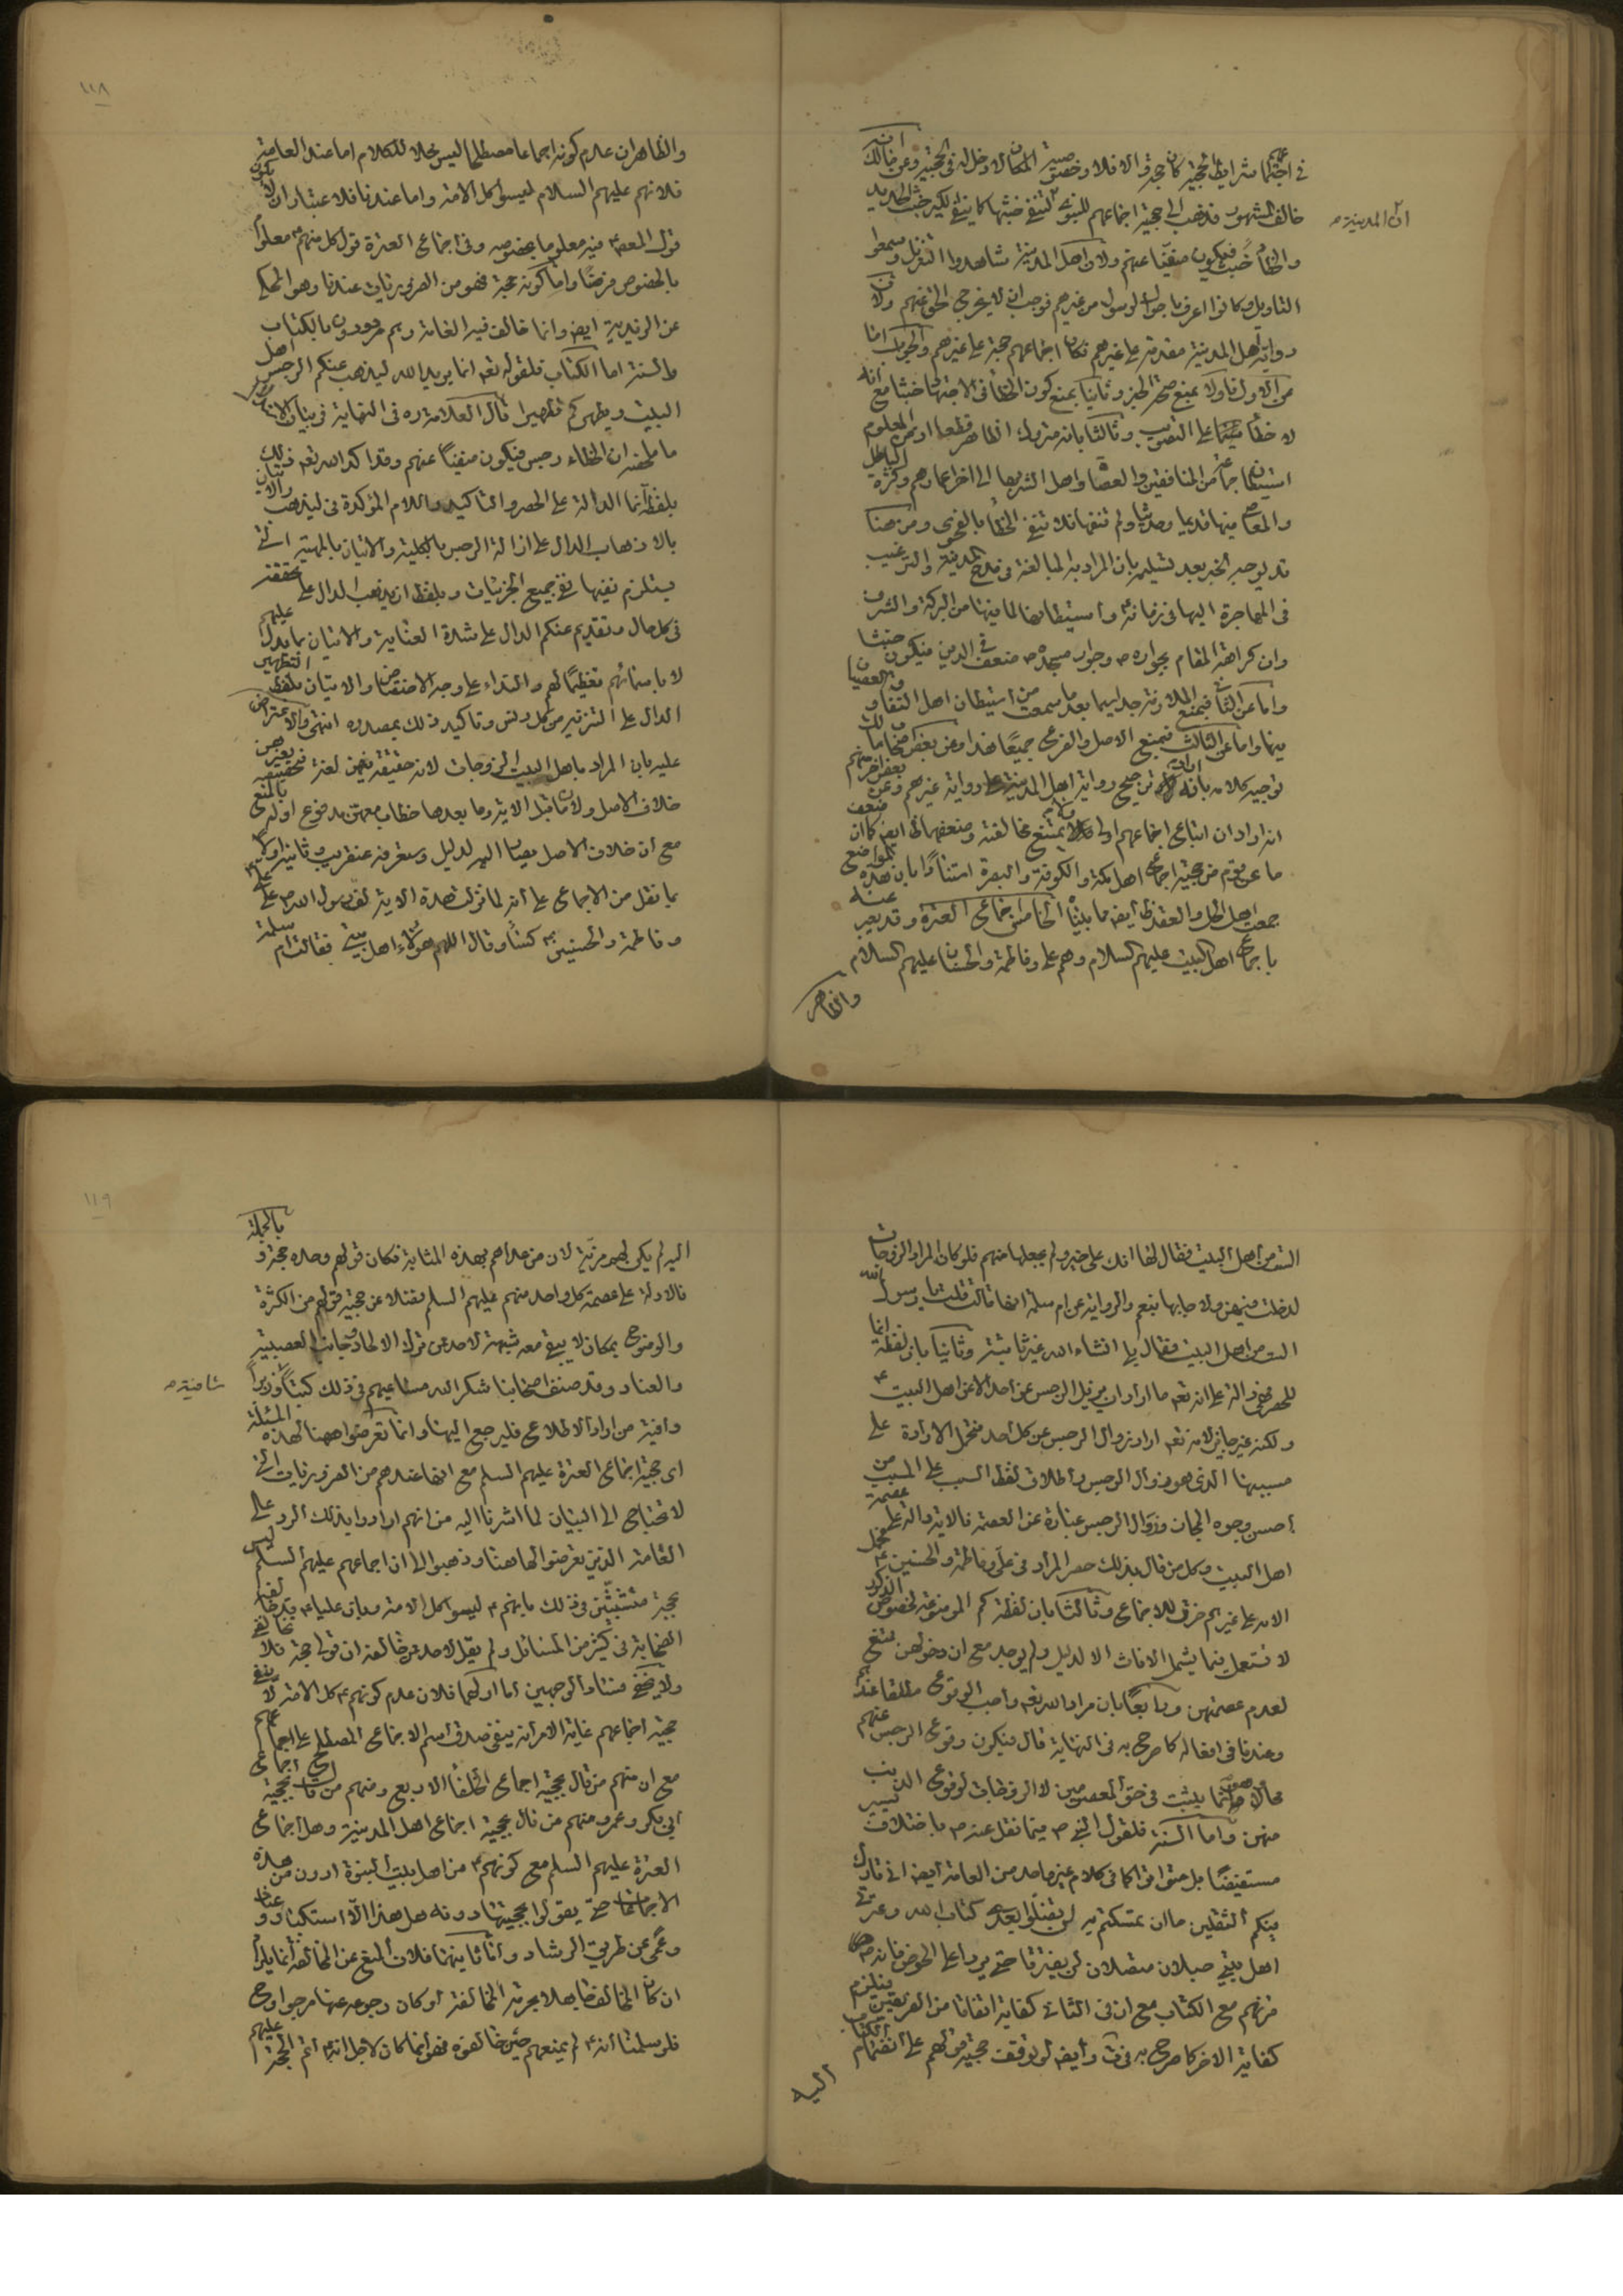 في اجتماعهم شرايط الحجية كان حجة والا فلا وخصوصية المكان لا دخل له في الحجية وعن مالك انه
خالف المشهور فذهب الى حجية اجماعهم للنبوي ان المدينة لتنفي خبثها كما ينفي الكير خبث الحديد
والخطأ خبث فيكون منفيا عنهم ولان اهل المدينة شاهدوا التنزيل وسمعوا
التاويل وكانوا اعرف باحوال الرسول من غيرهم فوجب ان لا يخرج الحق عنهم ولان
رواية اهل المدينة مقدمة على غيرهم فكان اجماعهم حجة على غيرهم والجواب اما
من الاول فاولا بمنع صحة الخبر وثانيا بمنع كون الخطأ في الاجتهاد خبثا مع انه
لا خطأ على التصويب وثالثا بانه متروك الظاهر قطعا اذ من المعلوم
استيطان جماعة من المنافقين والعصاة واهل الشر بها الى اخر اعمارهم وكثرة الباطل
والمعاصي فيها قديما وحديثا ولم تنفها فلا تنفي الخطأ بالفحوى ومن هنا
قد يوجه الخبر بعد تسليمه بان المراد به المبالغة في مدح المدينة والترغيب
في المهاجرة اليها في زمانه واستيطانها لما فيها من البركة والشرف
وان كراهة المقام بجواره ص وجوار مسجده ص ضعف في الدين فيكون خبثا
واما عن الثاني فبمنع الملازمة جدا سيما بعد ما سمعت من استيطان اهل النفاق والعصيان
فيها واما عن الثالث فبمنع الاصل والفرع جميعا هذا وعن بعض اصحاب مالك
توجيه كلامه بانه اراد ترجيح رواية اهل المدينة على رواية غيرهم وعن بعض اخر منهم
انه اراد ان اتباع اجماعهم اولى ولا يمتنع مخالفته وضعفهما ظاهر ايضا كما ان ضعف
ما عن قوم من حجية اجماع اهل مكة والكوفة والبصرة استنادا بان هذه المواضع
جمعت اهل الحل والعقد ظاهر ايضا ما بيناه الخامس اجماع العترة وقد يعبر عنه
باجماع اهل البيت عليهم السلام وهم علي وفاطمة والحسنان عليهم السلام
والظاهر
ان المدينة ص
١١٨
والظاهر ان عدم كونه اجماعا مصطلحا ليس محلا للكلام اما عند العامة
فلانهم عليهم السلام ليسوا كل الامة واما عندنا فلاعتبار ان لا يكون
قول المعصوم فيه معلوما بخصوصه وفي اجماع العترة قول كل منهم معلوم
بالخصوص فرضا واما كونه حجة فهو من الضروريات عندنا وهو المحكي
عن الزيدية ايضا وانما خالف فيه العامة وهم مردودون بالكتاب
والسنة اما الكتاب فلقوله تعالى انما يريد الله ليذهب عنكم الرجس اهل
البيت ويطهركم تطهيرا قال العلامة ره في النهاية في بيان الاستدلال
ما ملخصه ان الخطاء رجس فيكون منفيا عنهم وقد اكد الله تعالى ذلك
بلفظة انما الدالة على الحصر والتاكيد واللام المؤكدة في ليذهب والاتيان
بالاذهاب الدال على ازالة الرجس بالكلية والاتيان بالمهية التي
يستلزم نفيها نفي جميع الجزئيات وبلفظ يذهب الدال على تحققه
في كل حال وتقديم عنكم الدال على شدة العناية والاتيان بما يدل عليهم
لا باسمائهم تعظيما لهم والنداء على وجه الاختصاص والاتيان بلفظ التطهير
الدال على التنزيه من كل دنس وتاكيد ذلك بمصدره انتهى والاعتراض
عليه بان المراد باهل البيت الزوجات لانه حقيقة فيهن لغة فتخصيصه بغيرهن
خلاف الاصل ولان ما قبل الاية وما بعدها خطاب معهن مدفوع اولا بالمنع
مع ان خلاف الاصل يصار اليه لدليل وستعرفه عنقريب وثانيا
بما نقل من الاجماع على انه لما نزلت هذه الاية لف رسول الله ص على علي
وفاطمة والحسنين كساء وقال اللهم هؤلاء اهل بيتي فقالت ام سلمة
الست من اهل البيت فقال لها انك على خير ولم يجعلها منهم فلو كان المراد الزوجات
لدخلت فيهن ولاجابها بنعم والرواية عن ام سلمة انها قالت قلت يا رسول الله
الست من اهل البيت فقال بلى انشاء الله غير ثابتة وثانيا بان لفظة انما
للحصر فهي دالة على انه تعالى ما اراد ان يزيل الرجس عن احد الا عن اهل البيت
ولكنه غير جايز لانه تعالى اراد زوال الرجس عن كل احد فتحمل الارادة على
مسببها الذي هو زوال الرجس واطلاق لفظ السبب على المسبب من
احسن وجوه المجاز وزوال الرجس عبارة عن العصمة فالاية دالة على عصمة
اهل البيت وكل من قال بذلك حصر المراد في علي وفاطمة والحسنين فحمل
الاية على غيرهم خرق للاجماع وثالثا بان لفظة كم الموضوعة لخصوص الذكور
لا تستعمل فيما يشمل الاناث الا لدليل ولم يوجد مع ان دخولهن ممتنع
لعدم عصمتهن ورابعا بان مراد الله تعالى واجب الوقوع مطلقا عندهم
وعندنا في افعاله كما صرح به في النهاية قال فيكون وقوع الرجس عنهم
محالا وهو انما يثبت في حق المعصومين لا الزوجات لوقوع الذنب
منهن واما السنة فلقول النبي ص فيما نقل عنه ص باختلاف يسير
مستفيضا بل متواترا كما في كلام غير واحد من العامة ايضا اني تارك
فيكم الثقلين ما ان تمسكتم به لن تضلوا بعدي كتاب الله وعترتي
اهل بيتي حبلان متصلان لن يفترقا حتى يردا على الحوض فانه ص
قرنهم مع الكتاب مع ان في الثاني كفاية اتفاقا من الفريقين فيلزم
كفاية الاخر كما صرح به في وايضا لو توقف حجية قولهم على انضمام الكتاب
اليه
١١٩
اليه لم يكن لهم مزية لان من عداهم بهذه المثابة فكان قولهم وحده حجة وبالجملة
فالادلة على عصمة كل واحد منهم عليهم السلم فضلا عن حجية قولهم من الكثرة
والوضوح بمكان لا يبقى معه شبهة لاحد من ترك الالحاد وجانب العصبية
والعناد وقد صنف اصحابنا شكر الله مساعيهم في ذلك كتبا وزبرا شافية ص
وافية من اراد الاطلاع فليرجع اليها وانما تعرضوا ههنا لهذه المسئلة
اي حجية اجماع العترة عليهم السلم مع انها عندهم من الضروريات التي
لا تحتاج الى البيان لما اشرنا اليه من انهم ارادوا بذلك الرد على
العامة الذين تعرضوا لها هنا وذهبوا الى ان اجماعهم عليهم السلم ليس
بحجة متشبثين في ذلك بانهم ليسوا كل الامة وبان عليا ع قد خالفه
الصحابة في كثير من المسائل ولم يقل لاحد ممن خالفه ان قولي حجة فلا تخالفني
ولا يخفى فساد الوجهين اما اولهما فلان عدم كونهم ع كل الامة لا ينفي
حجية اجماعهم غاية الامر انه ينفي صدق اسم الاجماع المصطلح على اجماعهم
مع ان منهم من قال بحجية اجماع الخلفاء الاربع ومنهم من قال بحجية اجماع
ابي بكر وعمر ومنهم من قال بحجية اجماع اهل المدينة وهل اجماع
العترة عليهم السلم مع كونهم من اهل بيت النبوة ادون من هذه
الاجماعات حتى يقولوا بحجيتها دونه هل هذا الا استكبارا وعنادا
وعمى عن طريق الرشاد واما ثانيهما فلان المنع عن المخالفة انما يلزم
ان كان المخالف جاهلا بحرمة المخالفة او كان رجوعه عنها مرجوا وح
فلو سلمنا انه لم يمنعهم حين خالفوه فهو انما كان لاجل انه اتم الحجة عليهم